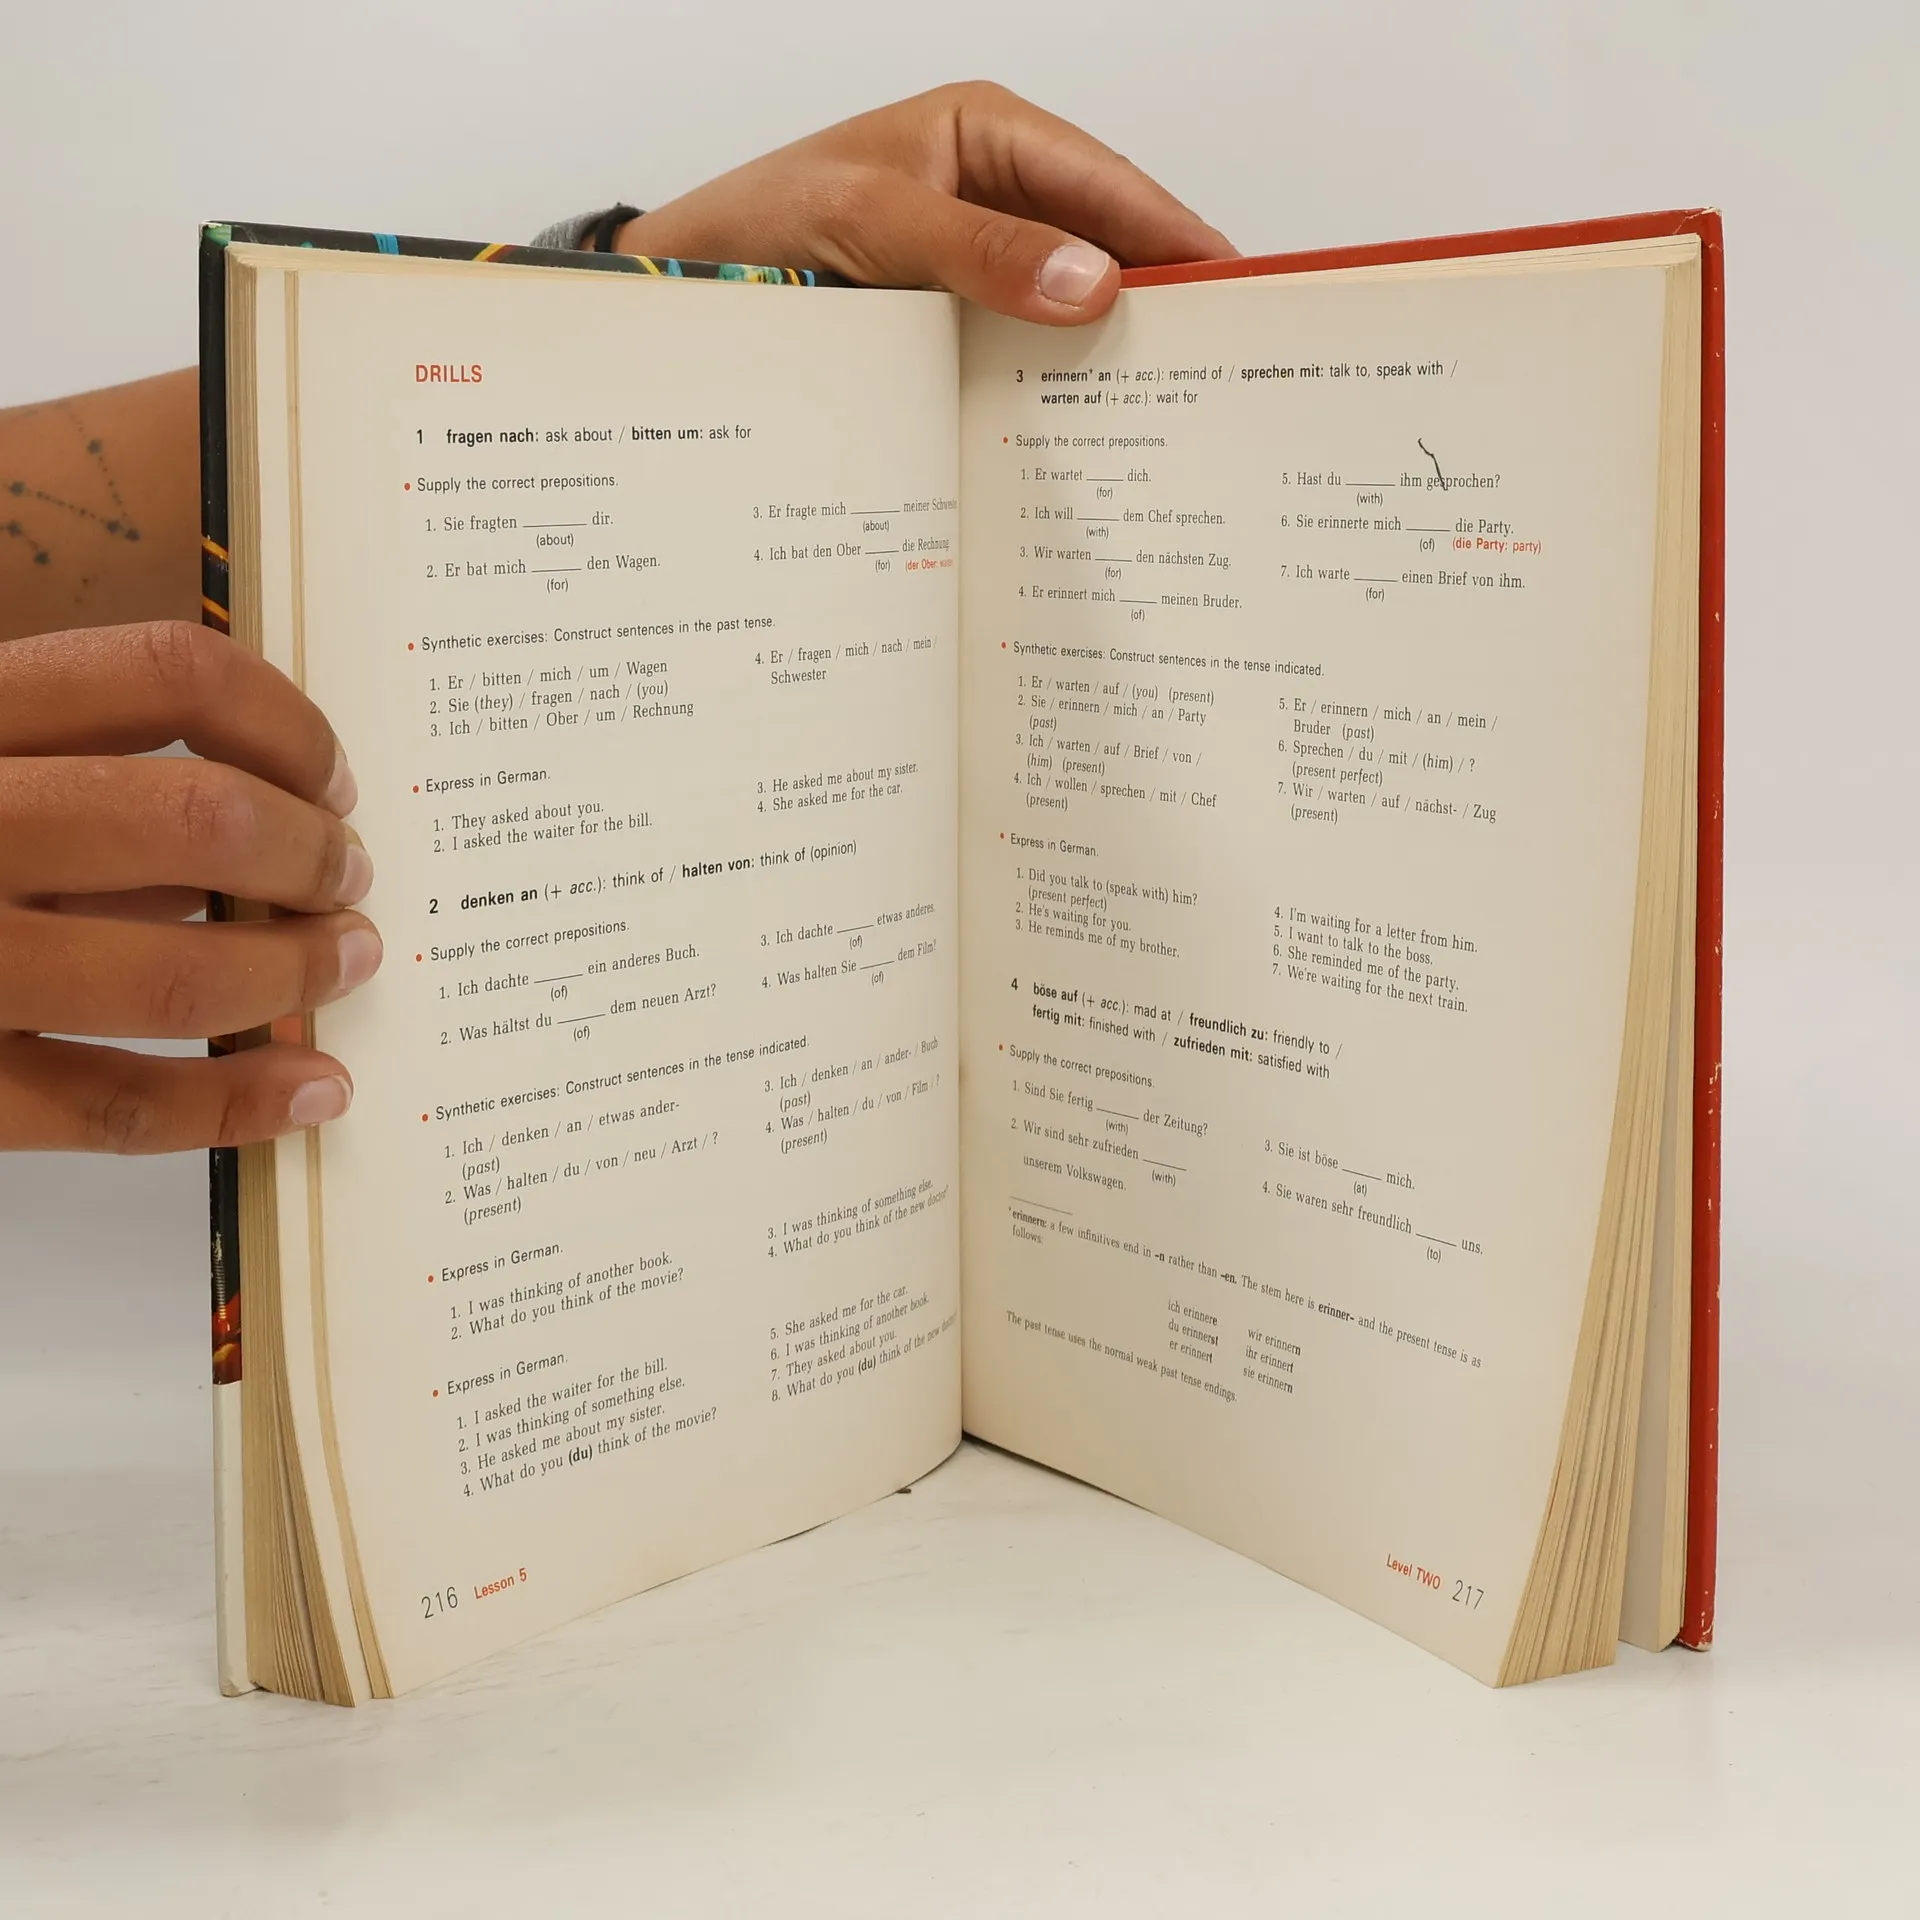 DRILLS
1 fragen nach: ask about / bitten um: ask for
• Supply the correct prepositions.
1. Sie fragten ______ dir.
(about)
2. Er bat mich ______ den Wagen.
(for)
3. Er fragte mich ______ meiner
(about)
4. Ich bat den Ober ______ die Rechnung
(for) (der Ober:
• Synthetic exercises: Construct sentences in the past tense.
1. Er / bitten / mich / um / Wagen
2. Sie (they) / fragen / nach / (you)
3. Ich / bitten / Ober / um / Rechnung
4. Er / fragen / mich / nach / mein /
Schwester
• Express in German.
1. They asked about you.
2. I asked the waiter for the bill.
3. He asked me about my sister.
4. She asked me for the car.
2 denken an (+ acc.): think of / halten von: think of (opinion)
• Supply the correct prepositions.
1. Ich dachte ______ ein anderes Buch.
(of)
2. Was hältst du ______ dem neuen Arzt?
(of)
3. Ich dachte ______ etwas anderes.
(of)
4. Was halten Sie ______ dem Film?
(of)
• Synthetic exercises: Construct sentences in the tense indicated.
1. Ich / denken / an / etwas ander-
(past)
2. Was / halten / du / von / neu / Arzt / ?
(present)
3. Ich / denken / an / ander- / Buch
(past)
4. Was / halten / du / von / Film / ?
(present)
• Express in German.
1. I was thinking of another book.
2. What do you think of the movie?
3. I was thinking of something else.
4. What do you think of the new doctor?
• Express in German.
1. I asked the waiter for the bill.
2. I was thinking of something else.
3. He asked me about my sister.
4. What do you (du) think of the movie?
5. She asked me for the car.
6. I was thinking of another book.
7. They asked about you.
8. What do you (du) think of the new doctor?
216 Lesson 5
3 erinnern* an (+ acc.): remind of / sprechen mit: talk to, speak with /
warten auf (+ acc.): wait for
• Supply the correct prepositions.
1. Er wartet ______ dich.
(for)
2. Ich will ______ dem Chef sprechen.
(with)
3. Wir warten ______ den nächsten Zug.
(for)
4. Er erinnert mich ______ meinen Bruder.
(of)
5. Hast du ______ ihm gesprochen?
(with)
6. Sie erinnerte mich ______ die Party.
(of) (die Party: party)
7. Ich warte ______ einen Brief von ihm.
(for)
• Synthetic exercises: Construct sentences in the tense indicated.
1. Er / warten / auf / (you) (present)
2. Sie / erinnern / mich / an / Party
(past)
3. Ich / warten / auf / Brief / von /
(him) (present)
4. Ich / wollen / sprechen / mit / Chef
(present)
5. Er / erinnern / mich / an / mein /
Bruder (past)
6. Sprechen / du / mit / (him) / ?
(present perfect)
7. Wir / warten / auf / nächst- / Zug
(present)
• Express in German.
1. Did you talk to (speak with) him?
(present perfect)
2. He's waiting for you.
3. He reminds me of my brother.
4. I'm waiting for a letter from him.
5. I want to talk to the boss.
6. She reminded me of the party.
7. We're waiting for the next train.
4 böse auf (+ acc.): mad at / freundlich zu: friendly to /
fertig mit: finished with / zufrieden mit: satisfied with
• Supply the correct prepositions.
1. Sind Sie fertig ______ der Zeitung?
(with)
2. Wir sind sehr zufrieden ______
(with)
unserem Volkswagen.
3. Sie ist böse ______ mich.
(at)
4. Sie waren sehr freundlich ______ uns.
(to)
*erinnern: a few infinitives end in -n rather than -en. The stem here is erinner- and the present tense is as
follows:
ich erinnere wir erinnern
du erinnerst ihr erinnert
er erinnert sie erinnern
The past tense uses the normal weak past tense endings.
Level TWO 217